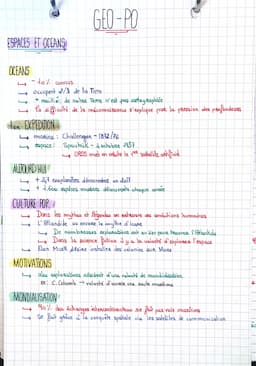 GEO-PO
ESPACES ET OCEANS
OCEANS
→ - 10% connus
→ occupent 2/3 de la Terre
→ + moitié de notre Terre n'est pas cartographiée
→ La difficulté de la méconnaissance s'explique par la pression des profondeurs
1ère EXPEDITION
→ marine : Challenger - 1872/76
→ espace : Spoutnik - 4 octobre 1957
→ URSS met en orbite le 1er satellite artificiel
AUJOURD'HUI
→ + exoplanètes découvertes en
→ + espèces marines découvertes chaque année
CULTURE POP
→ Dans les mythes et légendes on retrouve ces ambitions humaines
→ L'Atlantide ou encore le mythe d'Icare
→ De nombreuses explorations ont eu lieu pour trouver l'Atlantide
→ Dans la science fiction il y a la volonté d'explorer l'espace
→ Elon Musk désire installer des colonies sur Mars
MOTIVATIONS
→ des explorations naissent d'une volonté de mondialisation
ex : C. Colomb → volonté d'ouvrir une route maritime
MONDIALISATION
→ 90% des échanges intercontinentaux se fait par voie maritime
→ Se fait grâce à la conquête spatiale via les satellites de communication